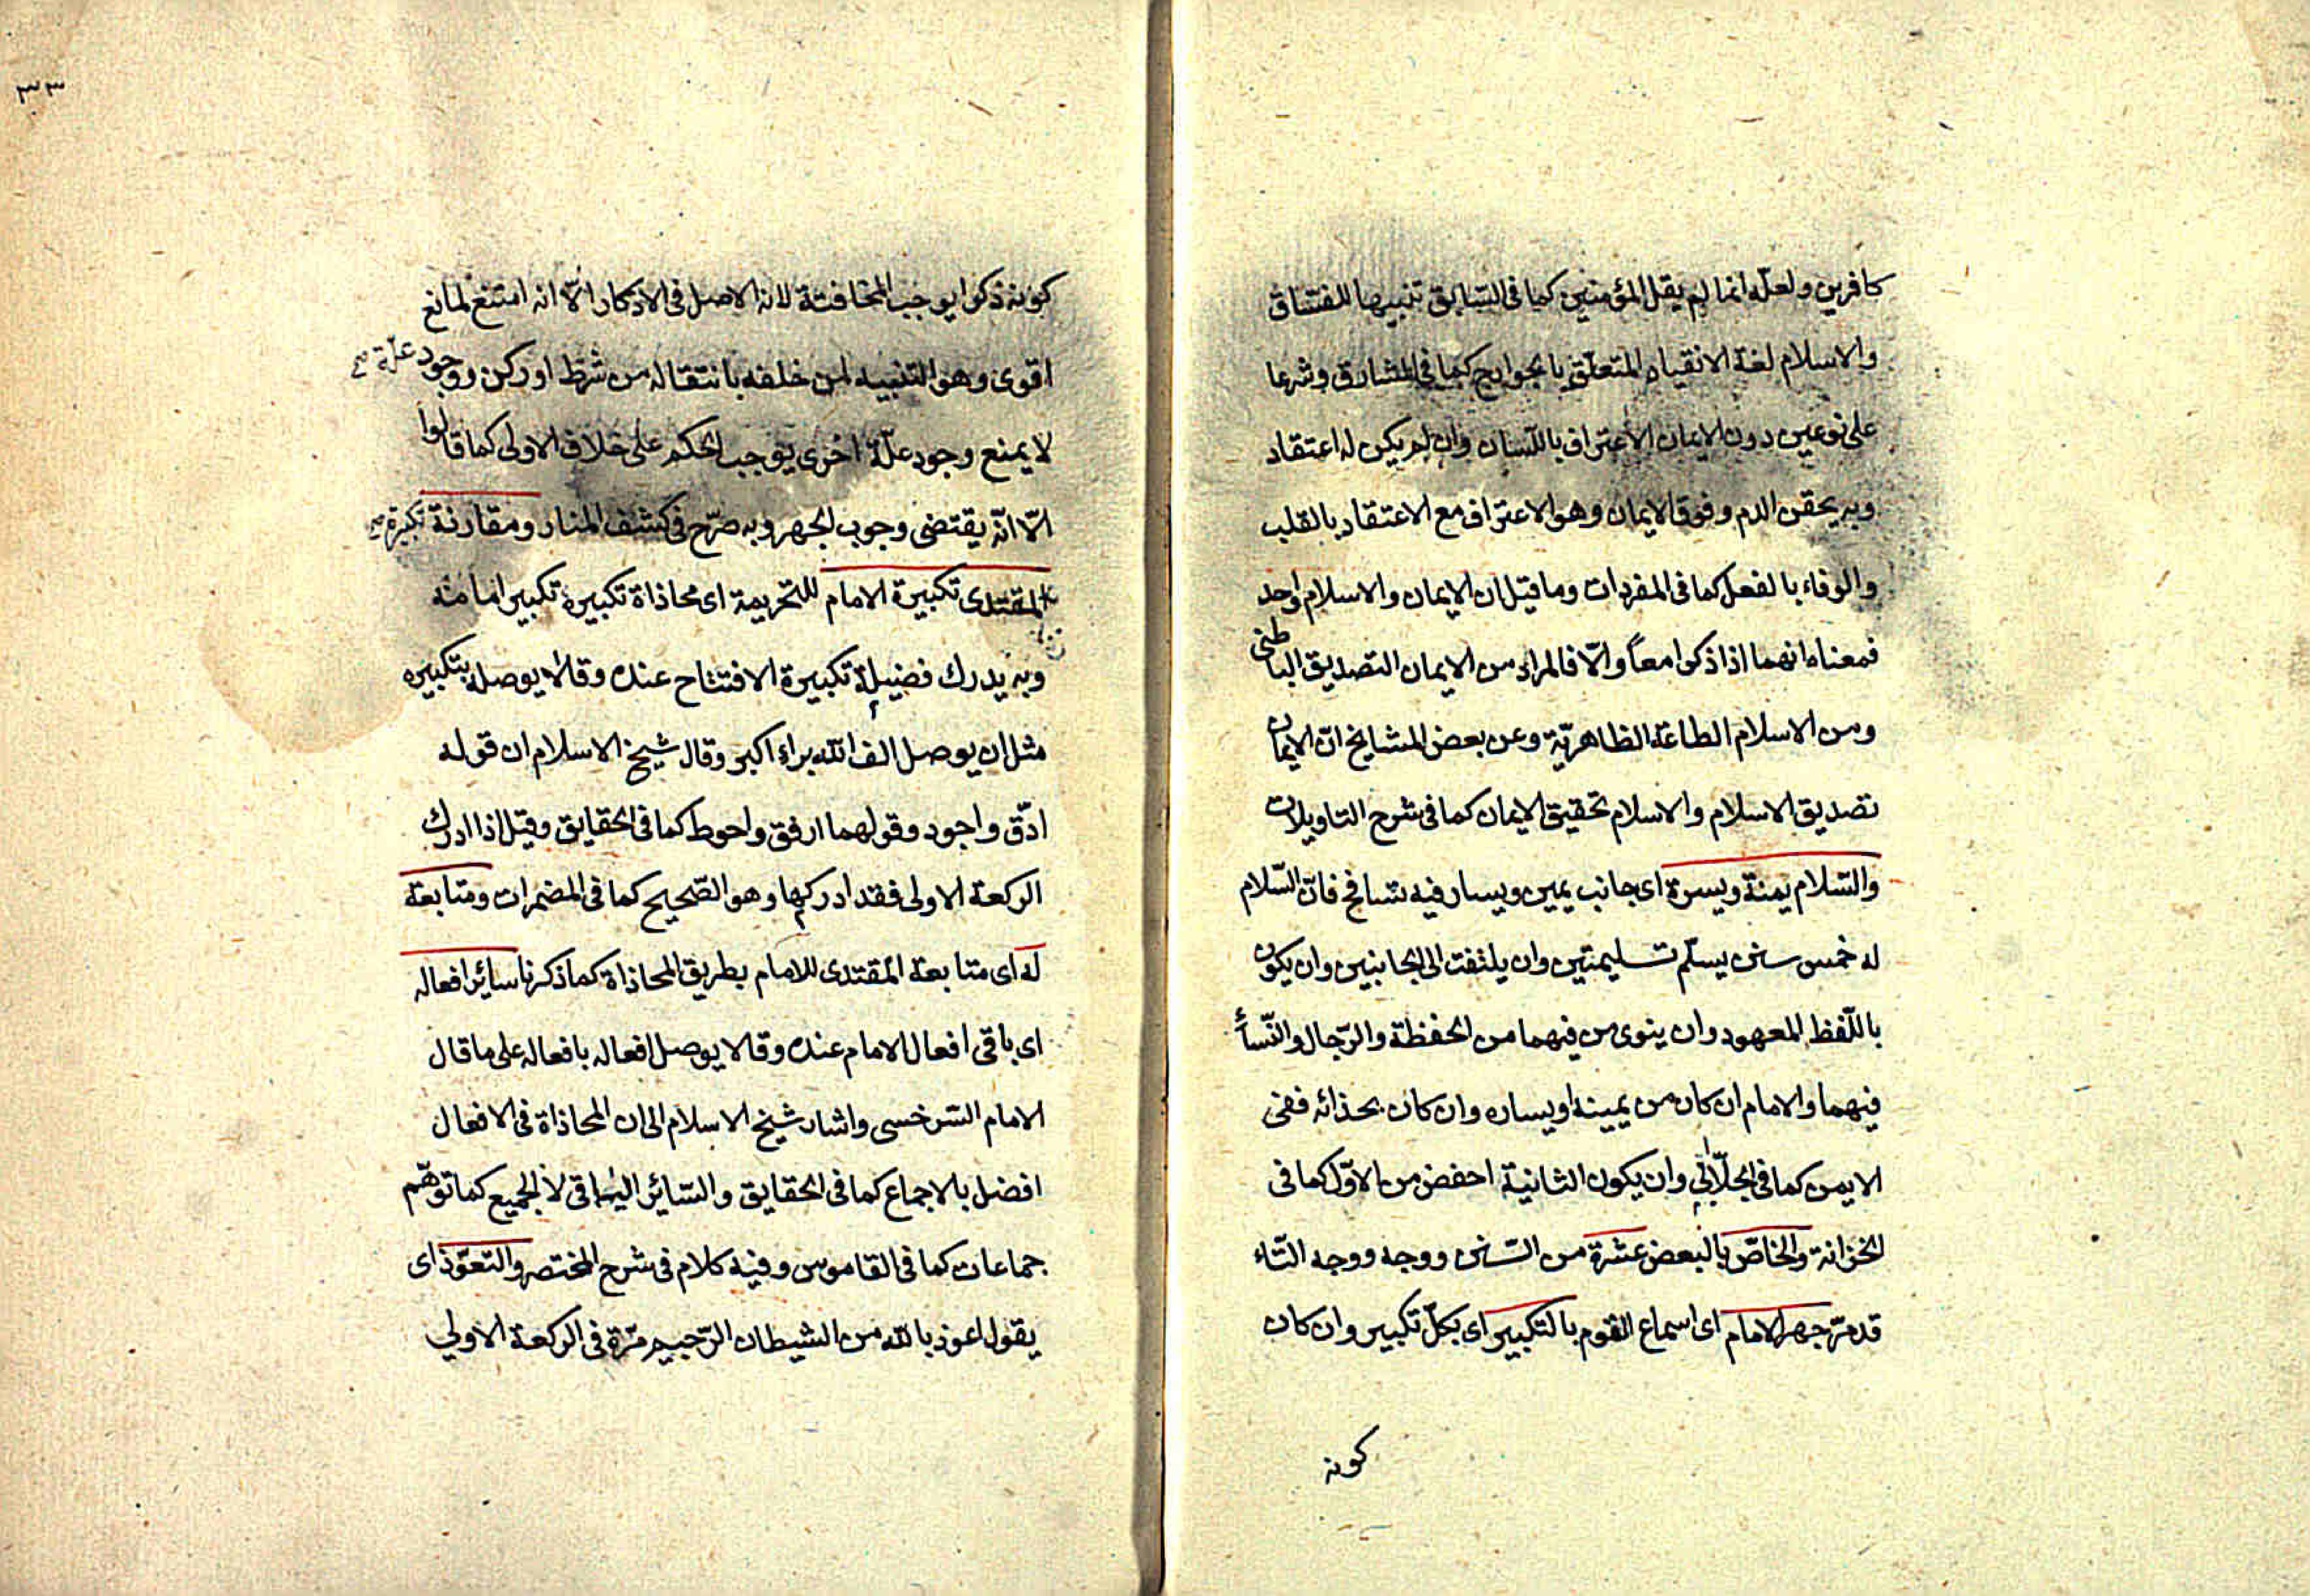 كافرين ولعله انما لم يقل المؤمنين كما فى السابق تنبيها للفتناق
والاسلام لغة الانقياد المتعلق بالجوارح كما فى المشارق وشرعا
على نوعين دون الايمان الاعتراف باللسان وان لم يكن له اعتقاد
وبه يحقن الدم وفوق الايمان وهو الاعتراف مع الاعتقاد بالقلب
والوفاء بالفعل كما فى المفردات وما قيل ان الايمان والاسلام واحد
فمعناه انهما اذا ذكرا معاً والّا فالمراد من الايمان التصديق الباطنى
ومن الاسلام الطاعة الظاهريّة وعن بعض المشايخ انّ الايمان
تصديق الاسلام والاسلام تحقيق الايمان كما فى شرح التاويلات
والسّلام يمنة ويسرة اى جانب يمين ويسار فيه تسامح فانّ السّلام
له خمس سنن يسلّم تسليمتين وان يلتفت الى الجانبين وان يكون
باللّفظ المعهود وان ينوى من فيهما من الحفظة والرّجال والنّسأ
فيهما والامام ان كان من يمينه او يساره وان كان بحذائه ففى
الايمن كما فى الجلّابى وان يكون الثانية احفض من الاوّل كما فى
الخزانة والخاصّ بالبعض عشرة من السّنن ووجه ووجه التّاء
قد مرّ جهر الامام اى اسماع القوم بالتكبير اى بكلّ تكبير وان كان
كونه
٣٣
كونه ذكرا يوجب المخافتة لانه الاصل فى الاذكار الّا انه امتنع لمانع
اقوى وهو التنبيه لمن خلفه بانتقاله من شرط او ركن ووجود علّة صح
لا يمنع وجود علّة اخرى يوجب الحكم على خلاف الاولى كما قالوا
الّا انّه يقتضى وجوب الجهر وبه صرّح فى كشف المنار ومقارنة تكبيرة صح
المقتدى تكبيرة الامام للتحريمة اى محاذاة تكبيرة تكبير امامه
وبه يدرك فضيلة تكبيرة الافتتاح عنده وقالا يوصل بتكبيره
مثل ان يوصل الف الله براء اكبر وقال شيخ الاسلام ان قوله
ادّق واجود وقولهما ارفق واحوط كما فى الحقايق وقيل اذا ادرك
الركعة الاولى فقد ادركها وهو الصّحيح كما فى المضمرات ومتابعة
له اى متابعة المقتدى للامام بطريق المحاذاة كما ذكرنا سائر افعاله
اى باقى افعال الامام عنده وقالا يوصل افعاله بافعاله على ما قال
الامام السّرخسى واشار شيخ الاسلام الى ان المحاذاة فى الافعال
افضل بالاجماع كما فى الحقايق والسّائر الباقى لا الجميع كما توهّم
جماعات كما فى القاموس وفيه كلام فى شرح المختصر والتعوّذ اى
يقول اعوذ بالله من الشيطان الرّجيم مرّة فى الركعة الاولى